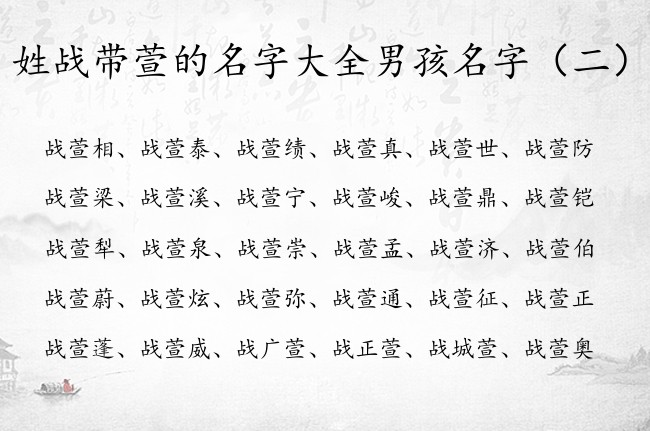 姓战带萱的名字大全男孩名字（二）
战萱相、战萱泰、战萱绩、战萱真、战萱世、战萱防
战萱梁、战萱溪、战萱宁、战萱峻、战萱鼎、战萱铠
战萱犁、战萱泉、战萱崇、战萱孟、战萱济、战萱伯
战萱蔚、战萱炫、战萱弥、战萱通、战萱征、战萱正
战萱蓬、战萱威、战广萱、战正萱、战城萱、战萱奥